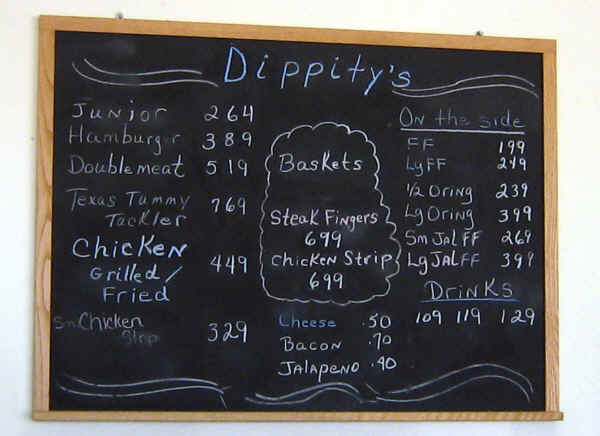 Dippity's
Junior 264
Hamburger 389
Doublemeat 519
Texas Tummy
Tackler 769
Chicken
Grilled/
Fried 449
Sm Chicken
Strip 329
Baskets
Steak Fingers
699
Chicken Strip
699
Cheese .50
Bacon .70
Jalapeno .40
On the side
FF 199
Lg FF 249
1/2 Oring 239
Lg Oring 399
Sm Jal FF 269
Lg Jal FF 399
Drinks
109 119 129